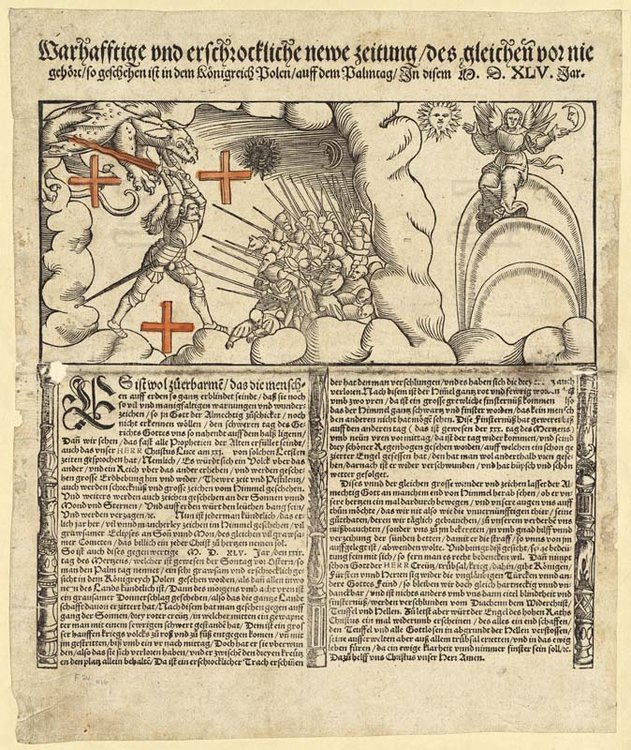 Warhafftige vnd erschrockliche newe zeitung/des gleichen vor nie
gehört/so geschehen ist in dem Königreich Polen/auff dem Palmtag/In disem M. D. XLV. Jar.
ES ist wol zůerbarmẽ/das die mensch-
en auff erden so gantz erblindet seind/daß sie noch
so vil vnd manigfaltigen warnungen vnd wunder-
zeichen/so jn Gott der Almechtig zůschicket/noch
nicht erkennen wöllen/den schweren tag des Ge-
richts Gottes vns so nahende auff dem halß ligent/
Dañ wir sehen/das fast alle Prophetien der Alten erfüllet seinde/
auch das vnser HERR Christus Luce am XXI. von solchen Letsten
zeiten gesprochen hat/Nemlich/Es würdt sich ein Volck vber das
ander/vnd ein Reich vber das ander erheben/vnd werden gesche-
hen grosse Erdbebung hin vnd wider/Thewre zeit vnd Pestilentz/
auch werden schrecknuß vnd grosse zeichen vom Himmel geschehen.
Vnd weiters werden auch zeichen geschehen an der Sonnen vnnd
Mond vnd Sternen/Vnd auff erden würt den leüthen bang sein/
Vnd werden verzagen ꝛc. Nun ist jederman kündtlich/das et-
lich jar her/vil vnnd mancherley zeichen am Himmel geschehen/vil
grawsamer Eclypses an Soñ vnd Mon/des gleichen vil grawsa-
mer Cometen/das billich ein jeder Christ zů hertzen nemen sol.
So ist auch dises gegenwertige M. D. XLV. Jar/den XXIX.
tag des Mertzens/welcher ist gewesen der Sontag vor Ostern/so
man den Palm tag nennet/ein sehr grawsam vnd erschröcklich ge-
sicht in dem Königreych Polen gesehen worden/als dañ allen inwo-
nern des Lands kündtlich ist/Dann des morgens vmb acht vren ist
ein grausamer Donnerschlag geschehen/also das die gantze Land
schafft dauon erzittert hat/Nach disem hat man gesehen gegen auff
gang der Sonnen/drey roter creütz/in welcher mitten ein gewapne-
ter man mit einem fewrigen schwert gestanden/
ser hauffen kriegs volcks zů roß vnd zů fůß entgegen komen/vñ mit
jm gestritten/biß vmb ein vr nach mittag/Doch hat er sie vberwun-
den/also das sie sich verloren haben/vnd er zwischẽ den dreyen kreütz
en den platz allein behaltẽ/Da ist ein erschrocklicher Trach erschinen
der hat den man verschlungen/vnd es haben sich die drey auch
verloren. Nach disem ist der Himel gantz rot vnd fewrig worden
vmb zwo vren/da ist ein grosse grewliche finsternuß kommen also
das der Himmel gantz schwartz vnd finster worden/das kein mensch
den anderen nicht hat mögẽ sehen. Dise Finsternuß hat geweret biß
auff den anderen tag das ist gewesen der XXX. tag des Mertzens
vmb neün vren vor mittag/da ist der tag wider kommen/vnd seind
drey schöner Regenbogen gesehen worden/auff welchen ein schön ge
zierter Engel gesessen hat/den hat man wol anderthalb vren gese-
hen/darnach ist er wider verschwunden/vnd hat hüpsch vnd schön
wetter gefolget.
Dises vnnd der gleichen grosse wonder vnd zeichen lasser der Al-
mechtig Gott an manchem end von Himmel herab sehen/ob er vn-
sere hertzen ein mal dardurch bewegen/vnd vnsere augen vns auff
thůn möchte/das wir nit also wie die vnuernünfftigen thier/seine
gůtthaten/deren wir täglich gebrauchen/zů vnserem verderbẽ vns
mißbrauchten/sonder vns zů jm bekerten/jn vmb gnad hilff vnnd
verzeyhung der sünden betten/damit er die straff/so vnns von jm
auffgelegt ist/abwenden wolte.
Fürsten vnnd Herren sig wider die vngleubigen Türcken vnnd an-
dere Gottes Feind/so bleiben wir doch gleich hartneckig vnnd vn-
danckbar/vnd ist nichts anders vmb vns dann eitel blindtheit vnd
finsternuß/werden verschlunden vom Trachen dem Widerchrist/
Teuffel vnd Hellen. Zů letst aber würdt der Engel des hohen Raths
Christus ein mal widerumb erscheinen/des alles ein end schaffen/
den Teuffel vnd alle Gottlosen in abgrundt der Hellen verstossen/
seine ausserwelten aber auß allem trübsal erretten/vnd in das ewig
leben fůren/da ein ewige klarheit vnnd nimmer finster sein soll/ꝛc.
Dazů helff vns Christus vnser Herr Amen.